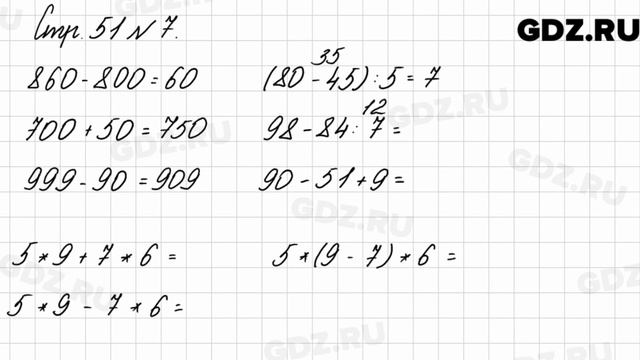 Стр. 51 № 7.
GDZ.RU
860 - 800 = 60
35
(80 - 45) : 5 = 7
700 + 50 = 750
12
98 - 84 : 7 =
999 - 90 = 909
90 - 51 + 9 =
5 * 9 + 7 * 6 =
5 * (9 - 7) * 6 =
5 * 9 - 7 * 6 =
GDZ.RU
GDZ.RU
GDZ.RU
GDZ.RU
GDZ.RU
GDZ.RU